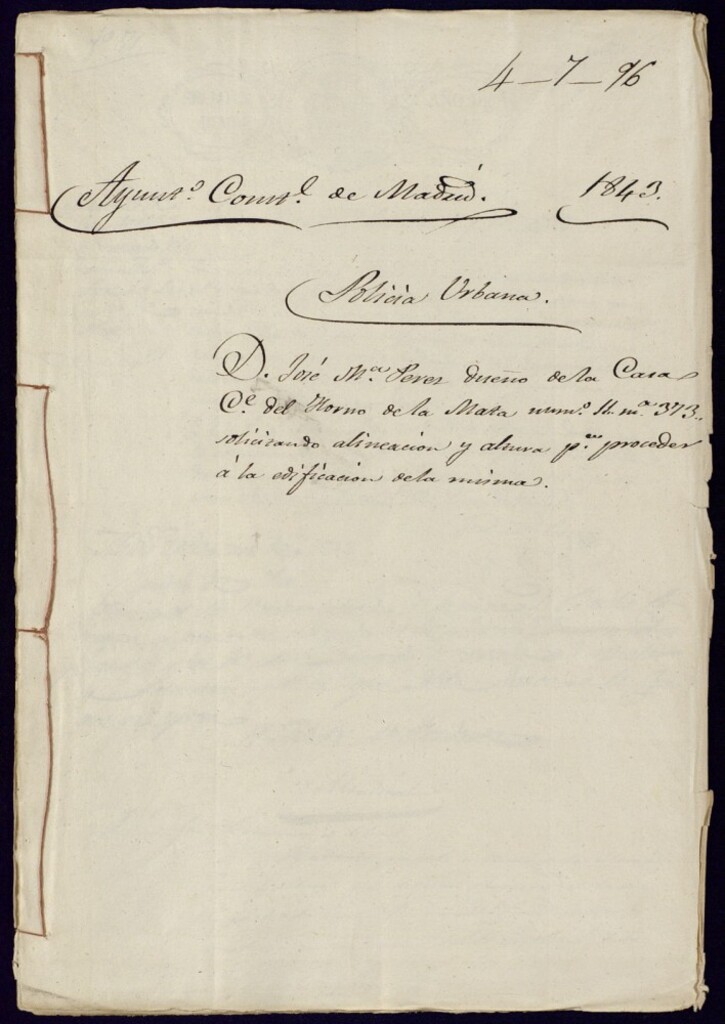 4-7-96
Ayunt.º Const.l de Madrid. 1843.
Policia Urbana.
D. José M.ª Perez dueño de la Casa
C.e del Horno de la Mata num.º 11 m.ª 373.
solicitando alineacion y altura p.ª proceder
á la edificacion de la misma.